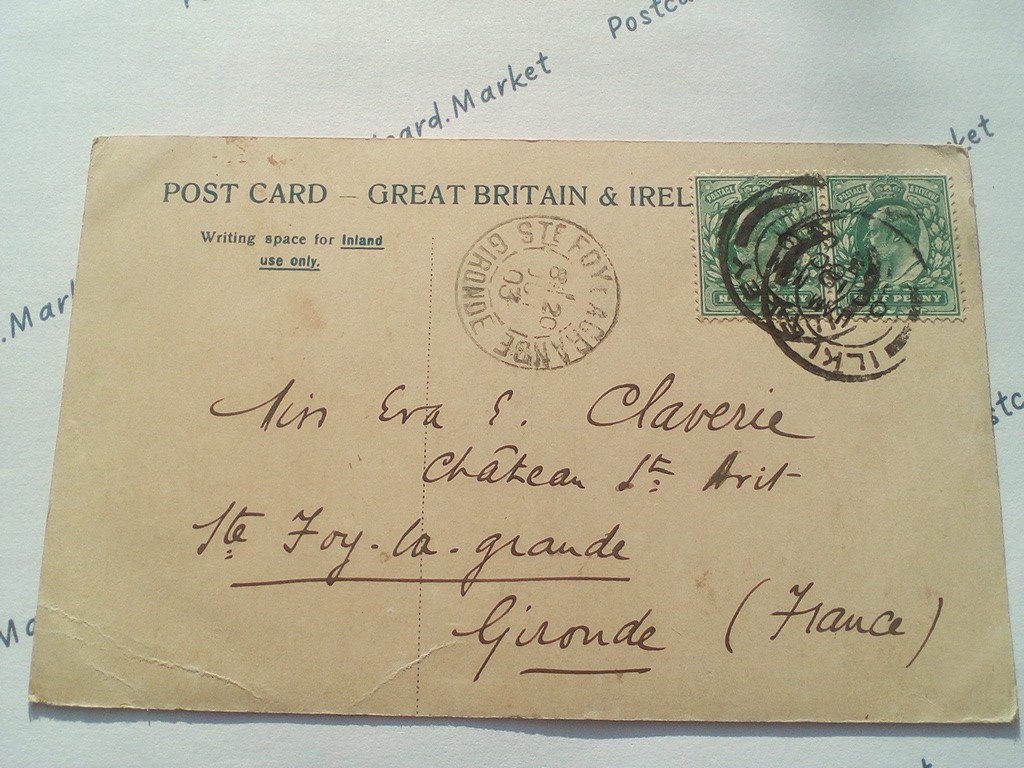 Postca
card.Market
ket
.Mar
stc
Ma
POST CARD – GREAT BRITAIN & IREL
Writing space for Inland
use only.
STE FOY LA GRANDE
GIRONDE
20
03
POSTAGE & REVENUE
HALF PENNY
ILKLEY
Miss Eva E. Claverie
Château St. Avit
Ste Foy-la-grande
Gironde (France)